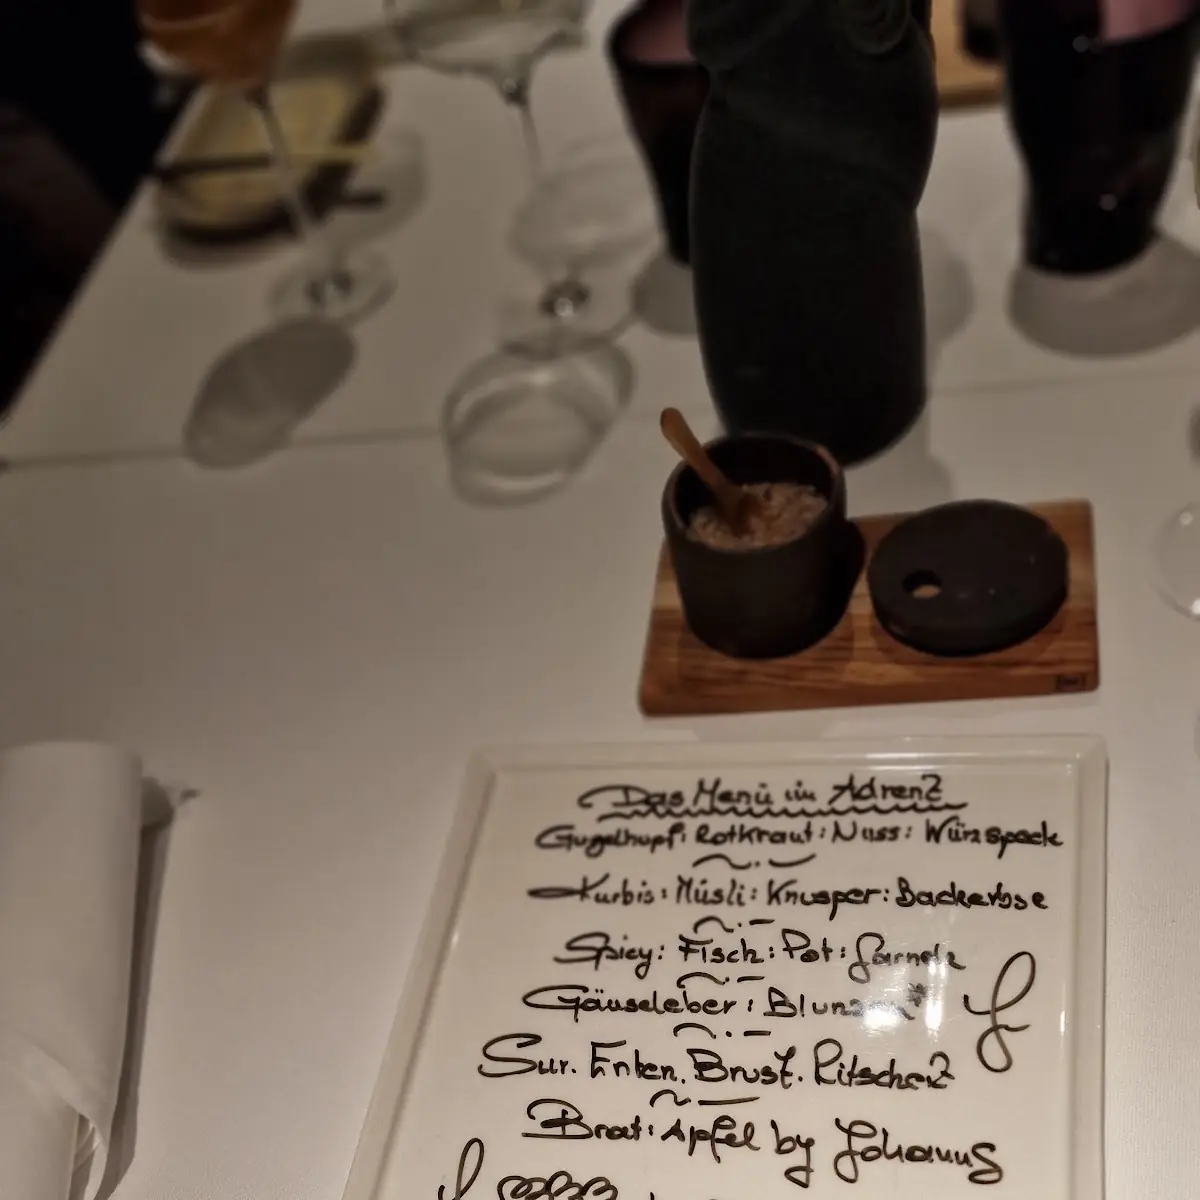 Das Menü im Adrenz
Gugelhupf: Rotkraut: Nuss: Würzspeck
Kürbis: Müsli: Knusper: Backerbse
Spicy: Fisch: Pot: Garnele
Gänseleber: Blunzen*
Sur. Enten. Brust. Ritscherz
Brat: Apfel by Johanns